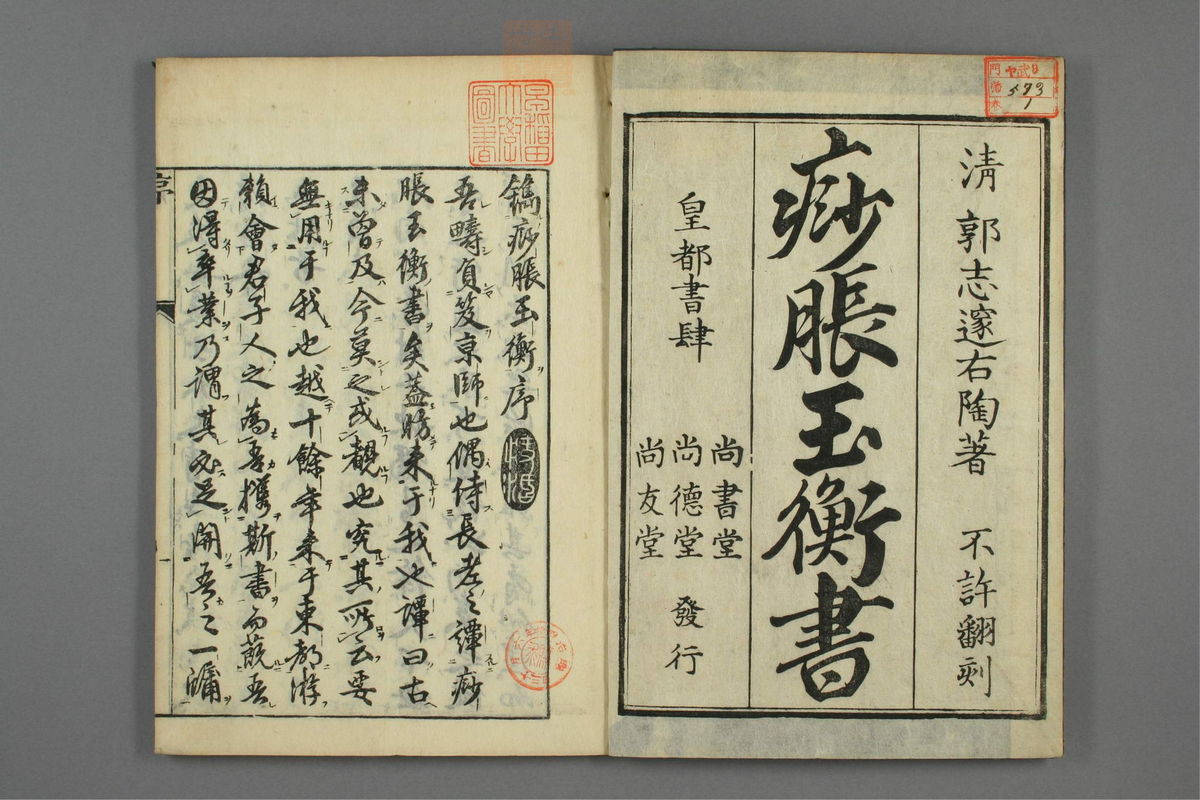 清 郭志邃右陶著 不許翻刻
痧脹玉衡書
皇都書肆
尚書堂
尚德堂
尚友堂
發行
鐫痧脹玉衡序
吾疇負笈京師也偶侍長老之譚痧
脹玉衡書矣蓋昉来于我也譚曰古
未曽及今莫之或覯也究其所云要
無用于我也越十餘年来于東都游
賴會君子人之為吾携斯書而蔇吾
因得卒業乃謂其必足開吾之一牖
早稲田大學圖書
573
1